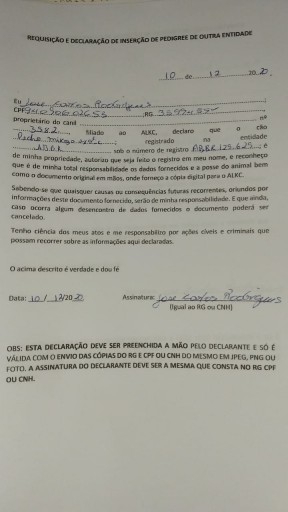 REQUISIÇÃO E DECLARAÇÃO DE INSERÇÃO DE PEDIGREE DE OUTRA ENTIDADE
10 de 12 20 20.
Eu Jose Carlos Rodrigues
CPF RG
proprietário do canil nº
3582 filiado ao ALKC, declaro que o cão
registrado na entidade
sob o número de registro é
de minha propriedade, autorizo que seja feito o registro em meu nome, e reconheço
que é de minha total responsabilidade os dados fornecidos e a posse do animal bem
como o documento original em mãos, onde forneço a cópia digital para o ALKC.
Sabendo-se que quaisquer causas ou consequências futuras recorrentes, oriundos por
informações deste documento fornecido, serão de minha responsabilidade. E que ainda,
caso ocorra algum desencontro de dados fornecidos o documento poderá ser
cancelado.
Tenho ciência dos meus atos e me responsabilizo por ações cíveis e criminais que
possam recorrer sobre as informações aqui declarados.
O acima descrito é verdade e dou fé
Data: 10 / 12/20 20 Assinatura: Jose Carlos Rodrigues
(Igual ao RG ou CNH)
OBS: ESTA DECLARAÇÃO DEVE SER PREENCHIDA A MÃO PELO DECLARANTE E SÓ É
VÁLIDA COM O ENVIO DAS CÓPIAS DO RG E CPF OU CNH DO MESMO EM JPEG, PNG OU
FOTO. A ASSINATURA DO DECLARANTE DEVE SER A MESMA QUE CONSTA NO RG CPF
OU CNH.